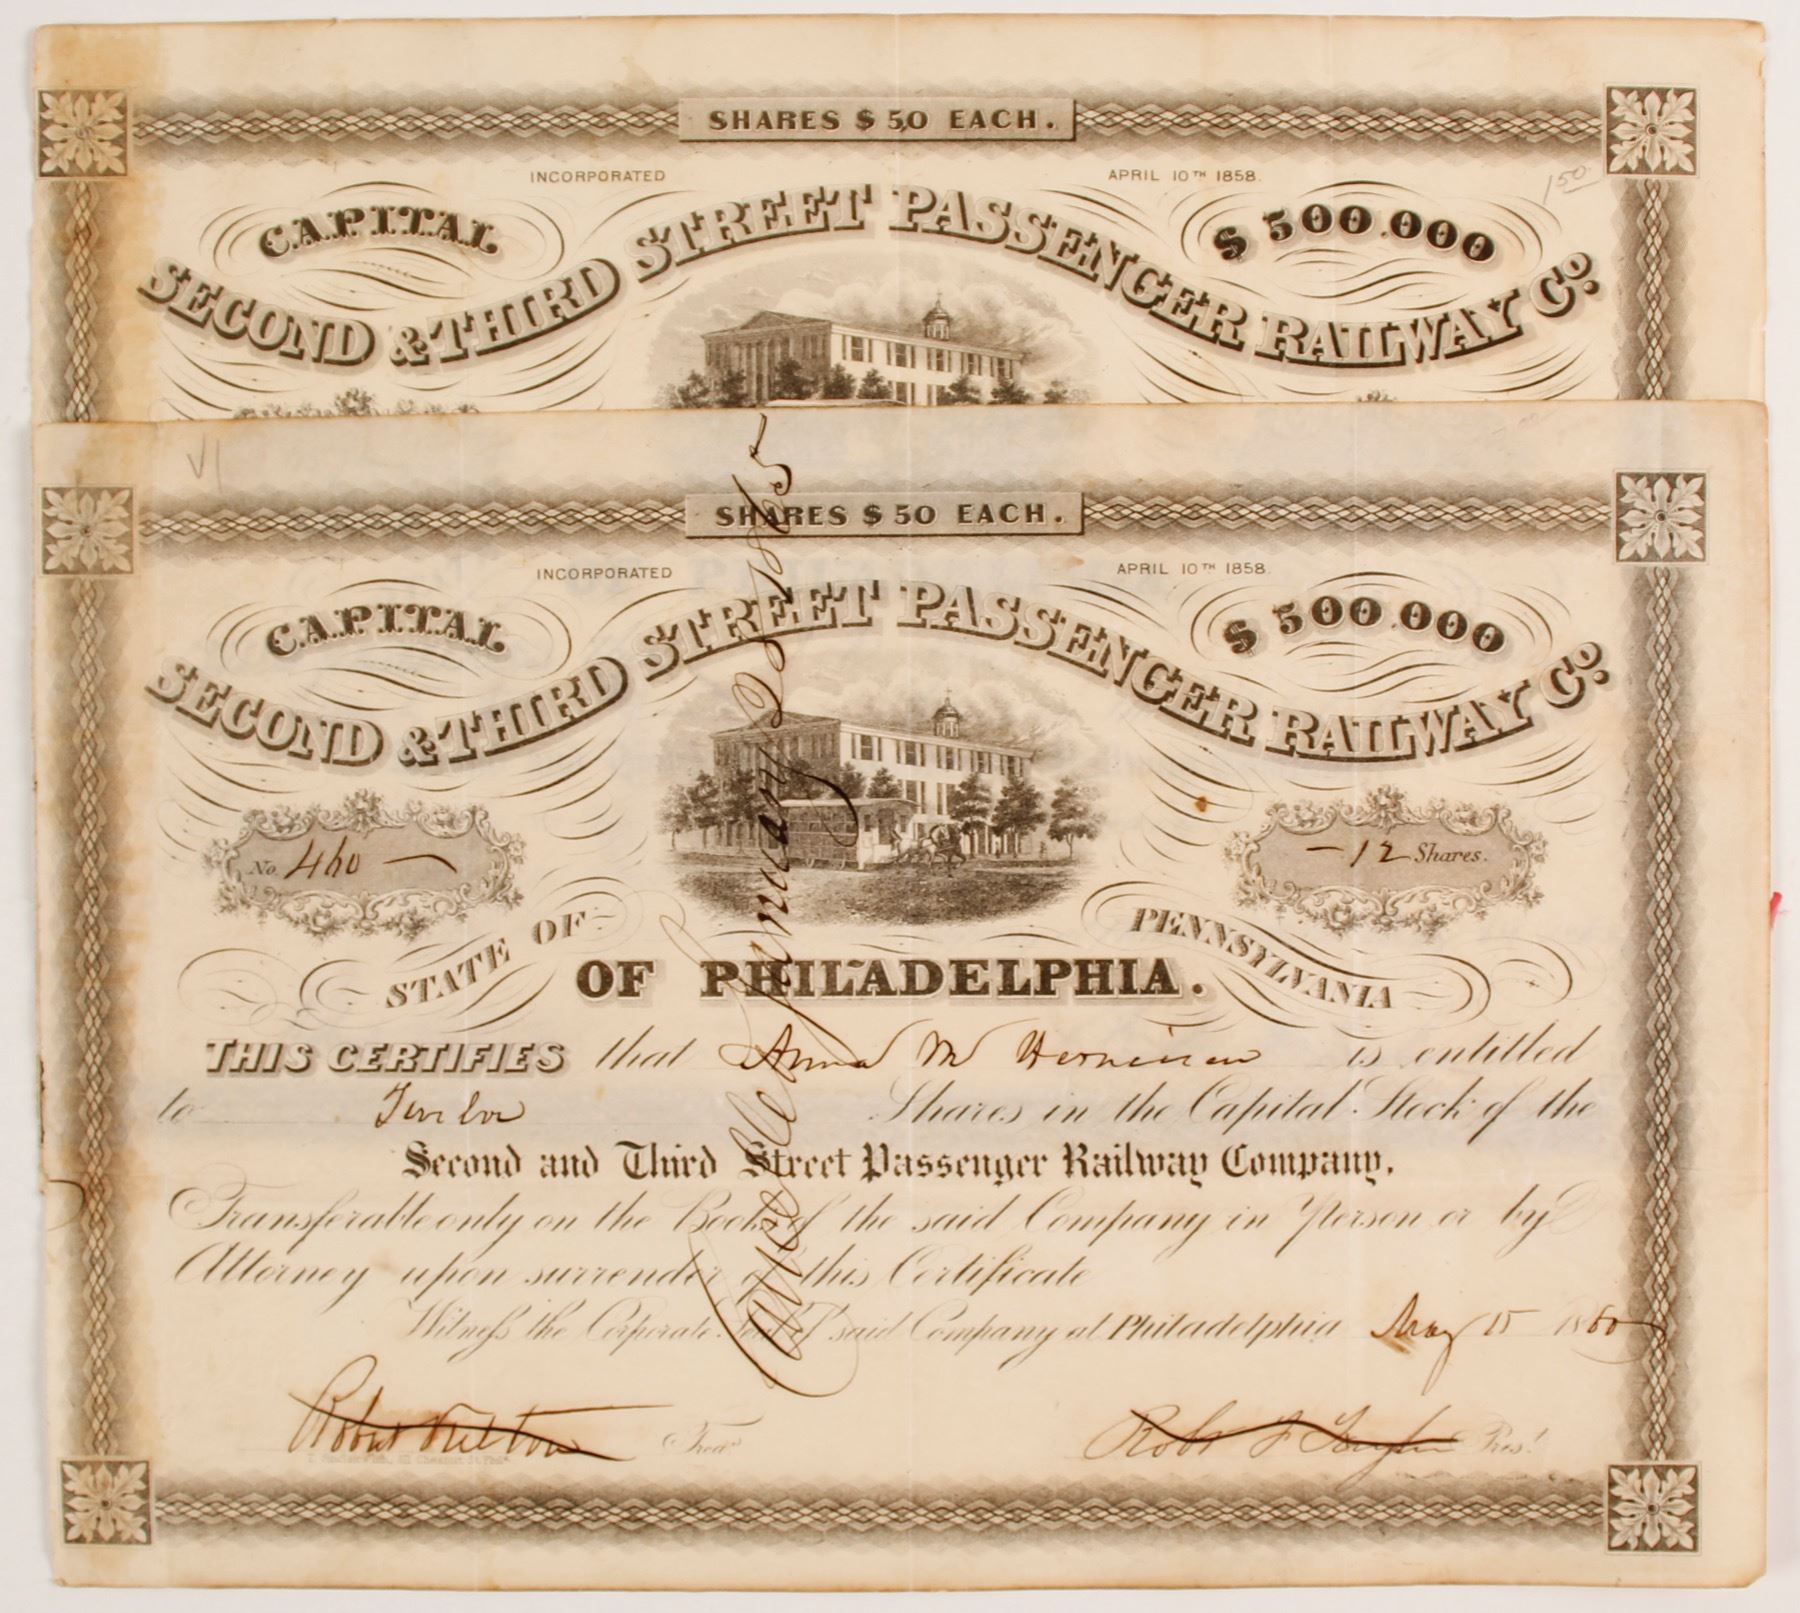 SHARES $ 50 EACH.
INCORPORATED APRIL 10TH 1858.
150
CAPITAL $ 500.000
SECOND & THIRD STREET PASSENGER RAILWAY Co.
VI
SHARES $ 50 EACH.
INCORPORATED APRIL 10TH 1858.
CAPITAL $ 500.000
SECOND & THIRD STREET PASSENGER RAILWAY Co.
No. 460 — 12 Shares.
STATE OF PENNSYLVANIA
OF PHILADELPHIA.
THIS CERTIFIES that Anna M is entitled
to Twelve Shares in the Capital Stock of the
Second and Third Street Passenger Railway Company.
Transferable only on the Books of the said Company in Person or by
Attorney upon surrender of this Certificate
Witness the Corporate Seal of said Company at Philadelphia May 15 1860
Robert Trear
Robt F Prest
T. Sinclair's lith., 311 Chestnut St. Phila.
Cancelled January 20 1865